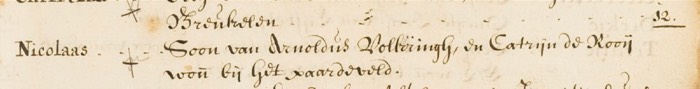 Breukelen 12.
Nicolaas Soon van Arnoldus Volkringh, en Catrijn de Rooij
woñ bij het paardeveld.